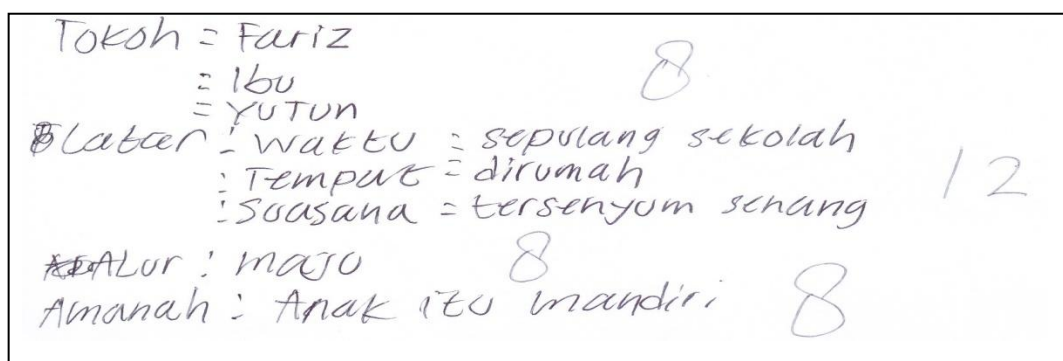 Tokoh = Fariz 8
= Ibu
= YUTUN
Latar : Waktu = sepulang sekolah
: Tempat = dirumah 12
: Suasana = tersenyum senang
ALur : maju 8
Amanah : Anak itu mandiri 8